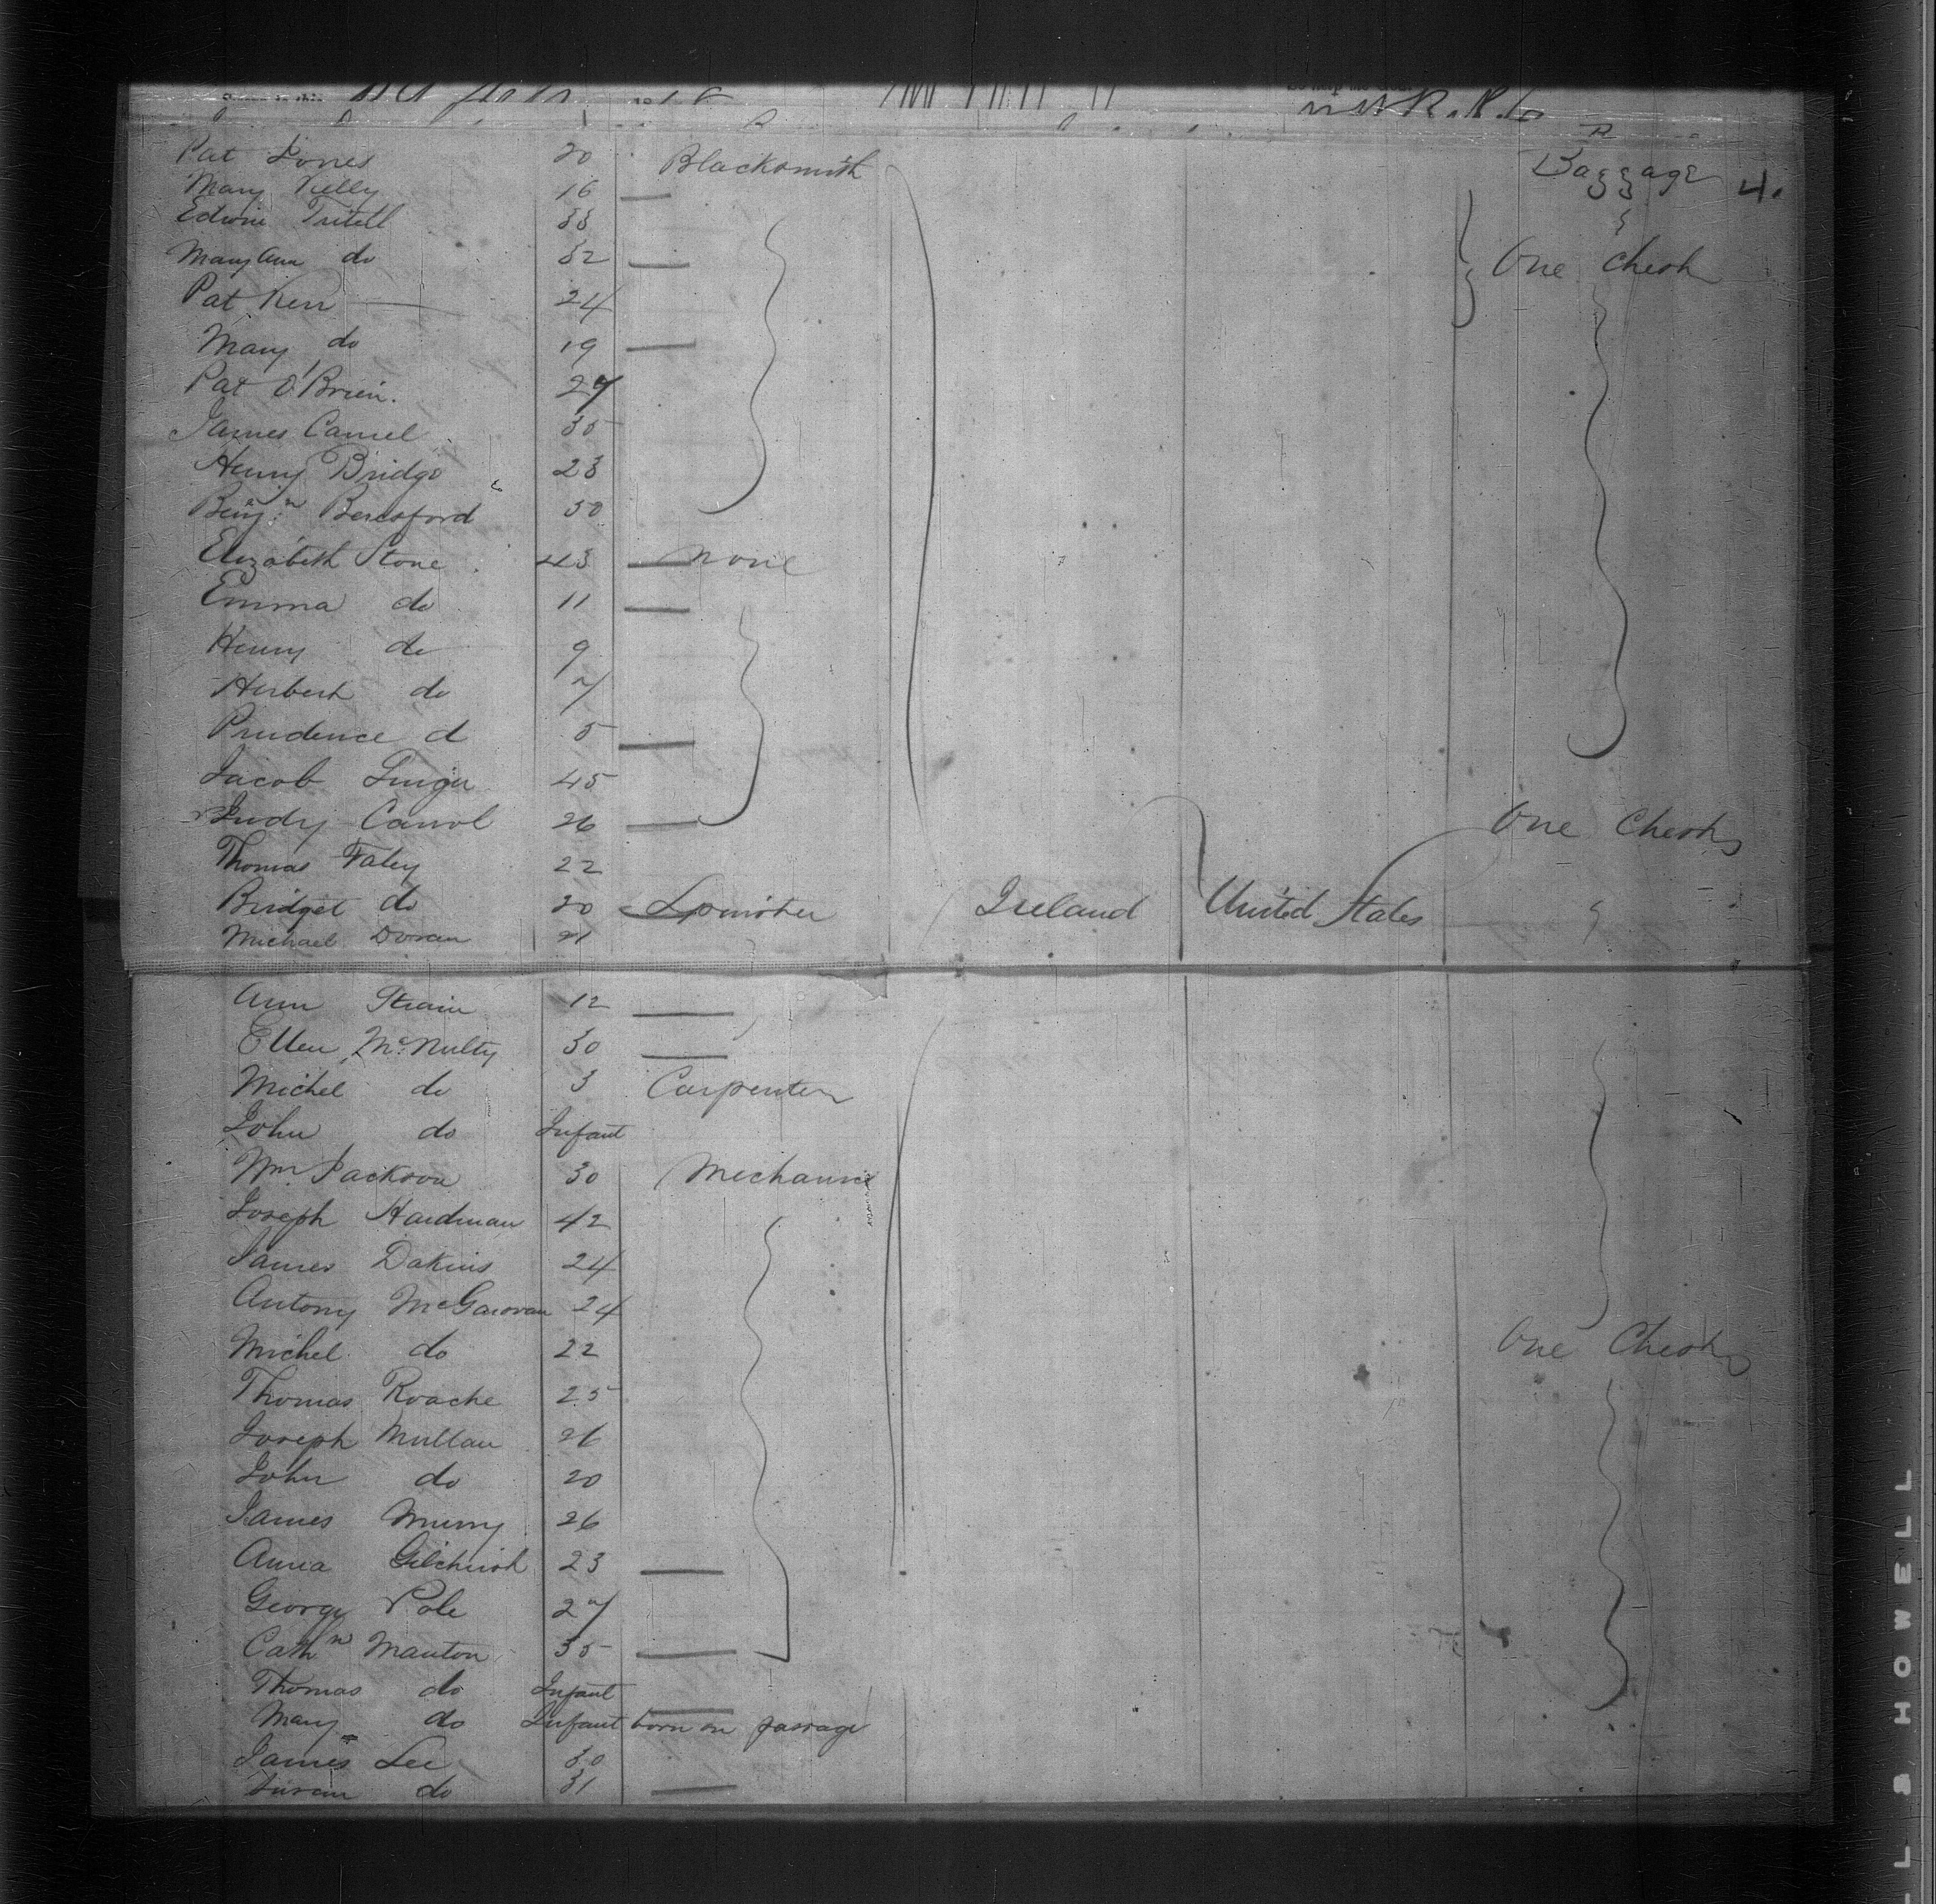 Baggage 4.
Pat Jones 20 Blacksmith
Mary Kelly 16
Edwin Tritell 33
Mary Ann do 32 One Chest
Pat Kerr 24
Mary do 19
Pat O'Brien. 27
James Camel 35
Henry Bridge 23
Benjn Beresford 50
Elizabeth Stone 43 none
Emma do 11
Henry do 9
Herbert do 7
Prudence d 5
Jacob 45
Judy Carrol 26 One Chest
Thomas Faley 22
Bridget do 20 Spinster Ireland United States
Michael Doran 21
Ann Strain 12
Ellen McNulty 30
Michel do 3 Carpenter
John do Infant
Wm Jackson 30 Mechanic
Joseph Hardman 42
James Dakins 24
Antony McGarovan 24
Michel do 22 One Chest
Thomas Roache 25
Joseph Mullan 26
John do 20
James Murry 26
Anna Gilchrist 23
George Pole 27
Cathn Manton 35
Thomas do Infant
Mary do Infant born on passage
James Lee 30
Susan do 31
L & HOWELL